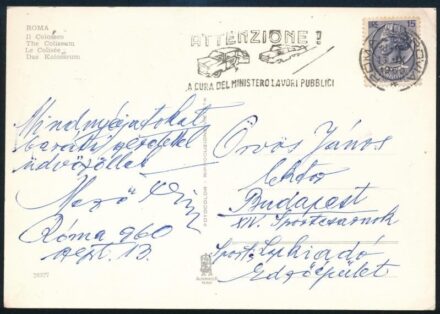 ROMA
Il Colosseo
The Coliseum
Le Colisée
Das Kolosseum
ATTENZIONE!
A CURA DEL MINISTERO LAVORI PUBBLICI
15
ROMA
Mindnyájatokat
baráti
üdvözöllek
Mező
Róma 960
szept. 13.
Orvös János
lektor
Budapest
XIV. Sportcsarnok
Sport Lapkiadó
Edzőépület